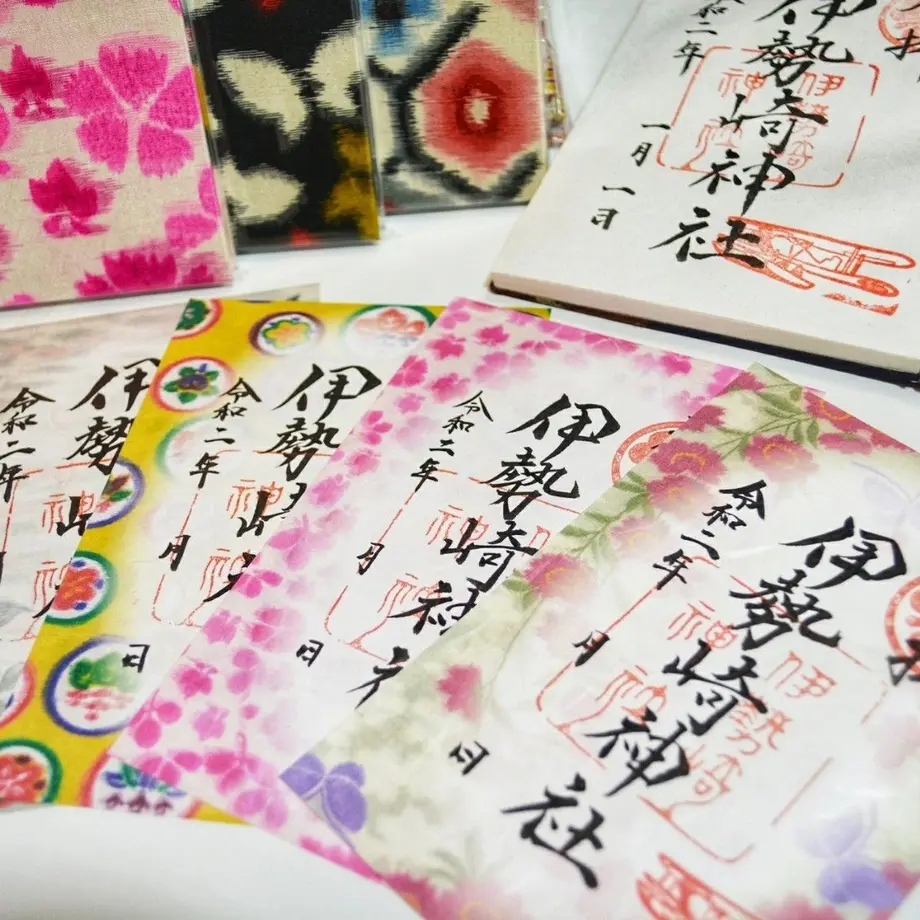 拝
伊勢崎神社
伊勢崎
神社
令和二年
一月
一日
伊勢
令和二年
月
伊勢
神
令和二年
月
日
伊勢崎神
神
令和二年
月
日
伊勢崎神社
伊勢崎
神社
令和二年
月
日